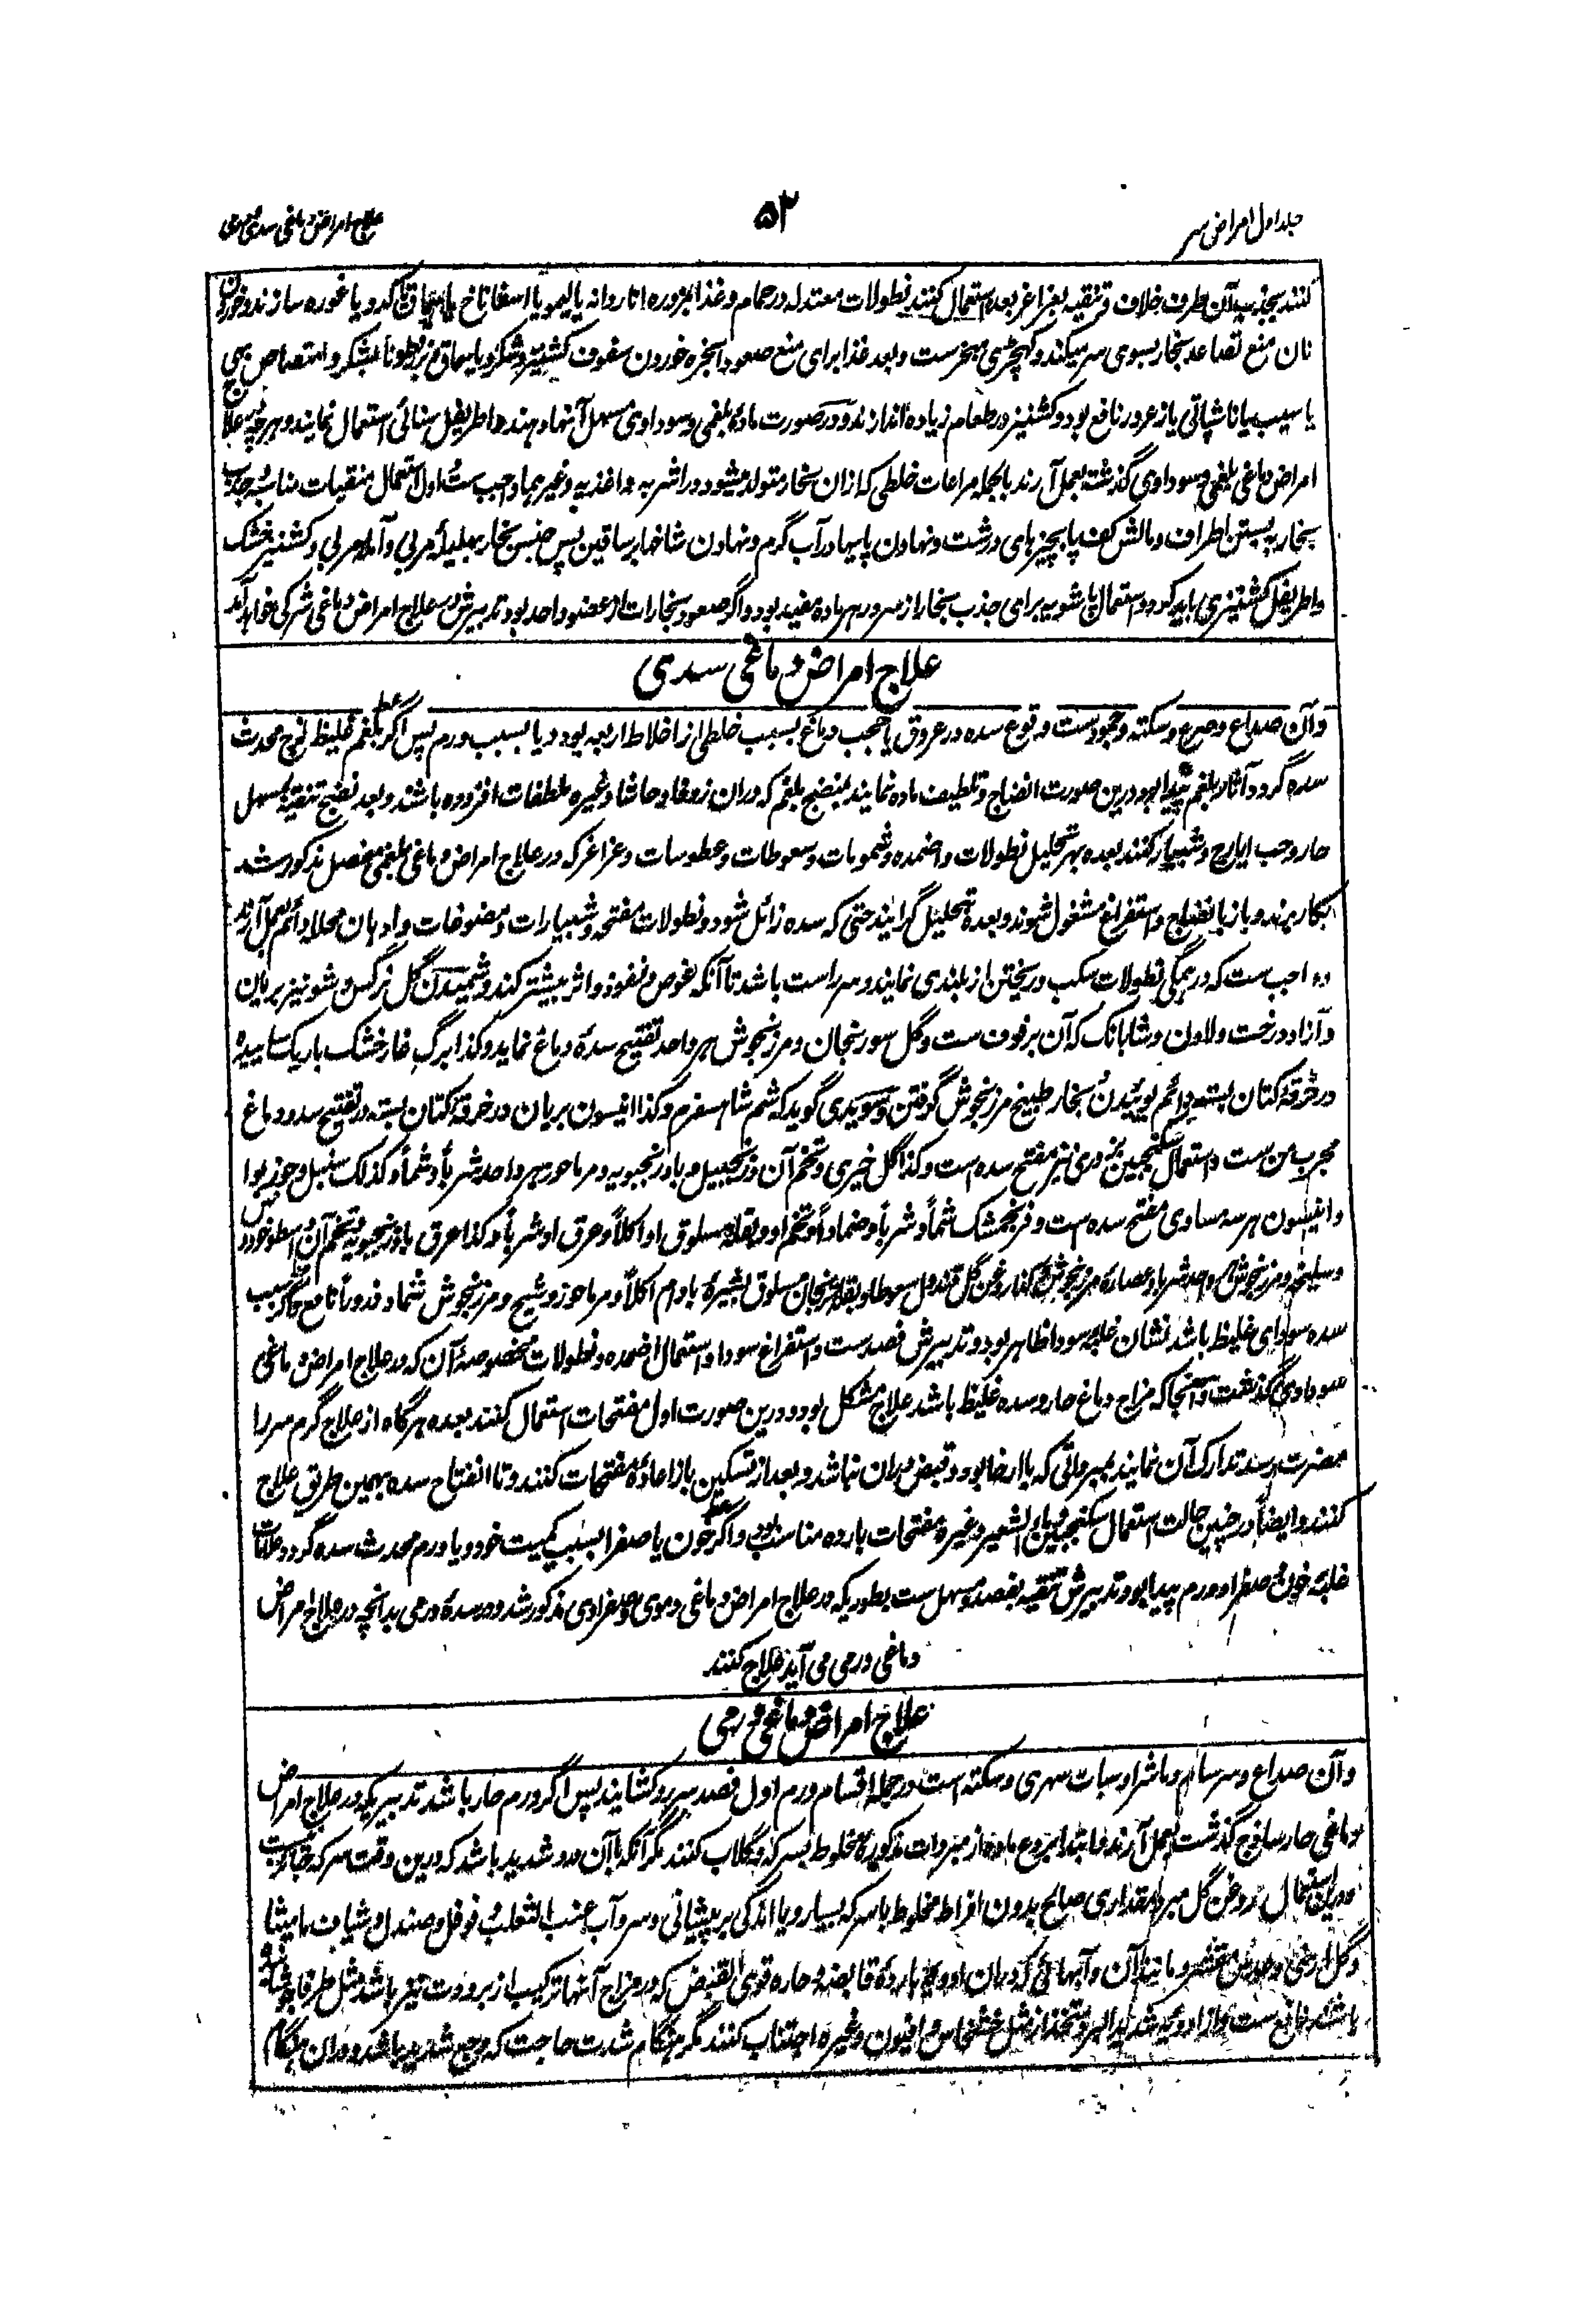 جلد اول امراض سر
۵۲
علاج امراض دماغی سدی
کنند بجذب آن بطرف خلاف و تنقیه بغراغر بعده استعمال کنند نطولات معتدله در حمام و غذا مزوره انار دانه یا لیمو یا اسفاناخ یا سماق کدو یا غوره سازند و خوردن
نان منع تصاعد بخار بسوی سر میکند و کهچڑی مبخرست و بعد غذا برای منع صعود ابخره خوردن سفوف کشنیز و شکر و یا سماق و بزرقطونا بشکر و امتصاص بهی
یا سیب یا ناشپاتی یا زعرور نافع بود و کشنیز در طعام زیاده اندازند و در صورت ماده بلغمی و سوداوی مسهل آنها دهند و اطریفل سنائی استعمال نمایند و هر چه در علاج
امراض دماغی بلغمی و سوداوی گذشته بعمل آرند بالجمله مراعات خلطی که ازان بخار متولد میشود در اشربه و اغذیه و غیرهما واجب ست اول استعمال منقیات مناسبه جذب
بخار به بستن اطراف و مالش کف پا بچیزهای درشت و نهادن پایها در آب گرم و نهادن شاخها بر ساقین پس حبس بخار بهلیله مربی و آمله مربی و کشنیز خشک
و اطریفل کشنیزی باید کرد و استعمال پاشویه برای جذب بخار از سر در هر ماده مفید بود و اگر صعود بخارات از عضو واحد بود تدبیرش در علاج امراض دماغی شرکی خواهد آمد
علاج امراض دماغی سدی
و آن صداع و صرع و سکته و جمودست و وقوع سده در عروق یا حجب دماغ بسبب خلطی از اخلاط اربعه بود و یا بسبب ورم پس اگر بلغم غلیظ لزج محدث
سده گردد آثار بلغم پیدا بود درین صورت انضاج و تلطیف ماده نمایند بمنضج بلغم که دران زوفا و حاشا و غیره ملطفات افزوده باشند و بعد نضج تنقیه بمسهل
حار و حب ایارج و شبیار کنند بعده بهر تحلیل نطولات و اضمده و شمومات و سعوطات و عطوسات و غراغر که در علاج امراض دماغی بلغمی مفصل مذکور شد
بکار برند و باز بانضاج و استفراغ مشغول شوند و بعده بتحلیل گرایند حتی که سده زائل شود و نطولات مفتحه و شبیارات و مضوغات و ادهان محلله دائم بعمل آرند
و واجب ست که در همگی نطولات سکب و ریختن از بلندی نمایند و سر راست باشد تا آنکه غوص و نفوذ و اثر بیشتر کند و شمیدن گل نرگس و شونیز بریان
و آزاد درخت و لادن و شابانک که آن برنوف ست و گل سورنجان و مرزنجوش هر واحد تفتیح سدهٔ دماغ نماید و کذا برگ غار خشک باریک سائیده
در خرقهٔ کتان بسته دائم بوئیدن و بخار طبیخ مرزنجوش گرفتن و سویدی گوید که شم شاهسفرم و کذا انیسون بریان در خرقهٔ کتان بسته در تفتیح سدد دماغ
مجرب من ست و استعمال سکنجبین بزوری نیز مفتح سده است و کذا گل خیری و تخم آن و زنجبیل و بادرنجبویه و مرماحور هر واحد شرباً و شماً و کذلک سنبل و جوزبوا
و افتیمون هر سه مساوی مفتح سده است و فرنجمشک شماً و شرباً و ضماداً و تخم او و بقله مسلوق او اکلاً و عرق او شرباً و کذا عرق بادرنجبویه و تخم آن و اسطوخودوس
و سلیخه و مرزنجوش هر واحد شرباً و عصارهٔ مرزنجوش و کذا روغن گل سعوطاً و مسلوق بشیرهٔ بادام اکلاً و مرماحوز و شیح و مرزنجوش شماد و ذروراً نافع و اگر سبب
سده سودای غلیظ باشد نشان غلبه سودا ظاهر بود و تدبیرش فصدست و استفراغ سودا و استعمال اضمده و نطولات مخصوصهٔ آن که در علاج امراض دماغی
سوداوی گذشت و آنجا که مزاج دماغ حار و سده غلیظ باشد علاج مشکل بود و درین صورت اول مفتحات استعمال کنند بعده هر گاه از علاج گرم سر را
مضرت رسد تدارک آن نمایند بمبرداتی که با ارخا بود و قبض دران نباشد و بعد از تسکین باز اعادهٔ مفتحات کنند و تا انفتاح سده بهمین طریق علاج
کنند و ایضاً در چنین حالت استعمال سکنجبین و ماء الشعیر و غیره مفتحات بارده مناسب بود و اگر خون یا صفرا بسبب کمیت خود و یا ورم محدث سده گردد علامات
غلبه خون و صفرا و ورم پیدا بود و تدبیرش تنقیه بفصد و مسهل ست بطوریکه در علاج امراض دماغی دموی و صفراوی مذکور شد و در سدهٔ ورمی بدانچه در علاج امراض
دماغی ورمی می آید علاج کنند
علاج امراض دماغی ورمی
و آن صداع و سرسام و ماشرا و سبات سهری و سکته است و در جمله اقسام ورم اول فصد سررو کشایند پس اگر ورم حار باشد تدبیریکه در علاج امراض
دماغی حار ساذج گذشت بعمل آرند و ابتدا بردع ماده از مبردات مذکوره مخلوط بسرکه و گلاب کنند مگر آنکه با آن درد شدید باشد که درین وقت سرکه جائز نیست
و درین استعمال روغن گل مبرد بمقداری صالح بدون افراط مخلوط با سرکه بسیار و یا اندکی بر پیشانی و سر و آب عنب الثعلب و فوفل و صندل و شیاف مامیثا
و گل ارمنی و عدس مقشر و مانند آن و آبهائی که دران ادویهٔ باردهٔ قابضه و حاره قوی القبض که در مزاج آنها ترکیب از برودت نیز باشد مثل طرفا
باشند نافع ست و از ادویه شدید البرد و مخدر مثل خشخاش و افیون و غیره اجتناب کنند مگر هنگام شدت حاجت که وجع شدید باشد و دران هنگام